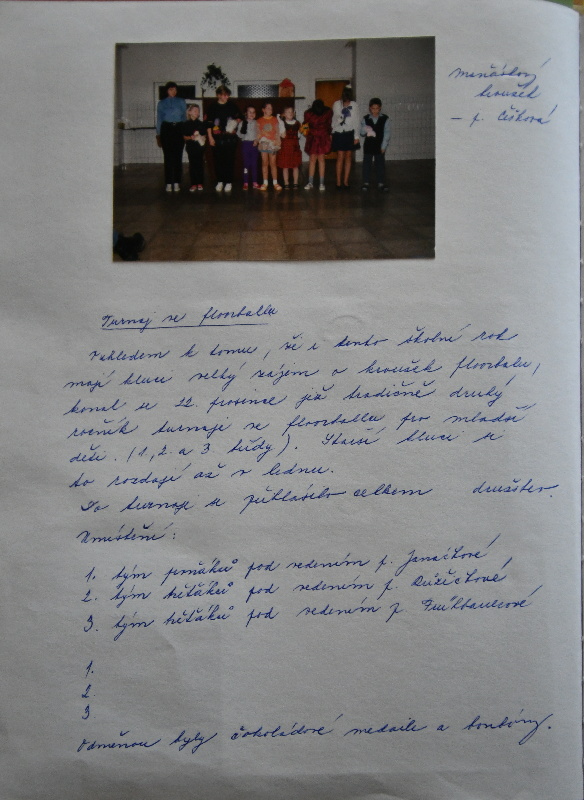 Maňáskový
kroužek
- p. Čížková
Turnaj ve floorballu
Vzhledem k tomu, že i tento školní rok
mají kluci velký zájem o kroužek floorbalu,
konal se 22. prosince již tradičně druhý
ročník turnaje ve floorballu pro mladší
děti. (1, 2. a 3 třídy). Starší kluci si
to rozdají až v lednu.
Do turnaje se přihlásilo celkem družstev.
Umístění:
1. tým prvňáků pod vedením p. Janáčkové
2. tým třeťáků pod vedením p. Růžičkové
3. tým třeťáků pod vedením p.
1.
2.
3
Odměnou byly čokoládové medaile a bonbóny.